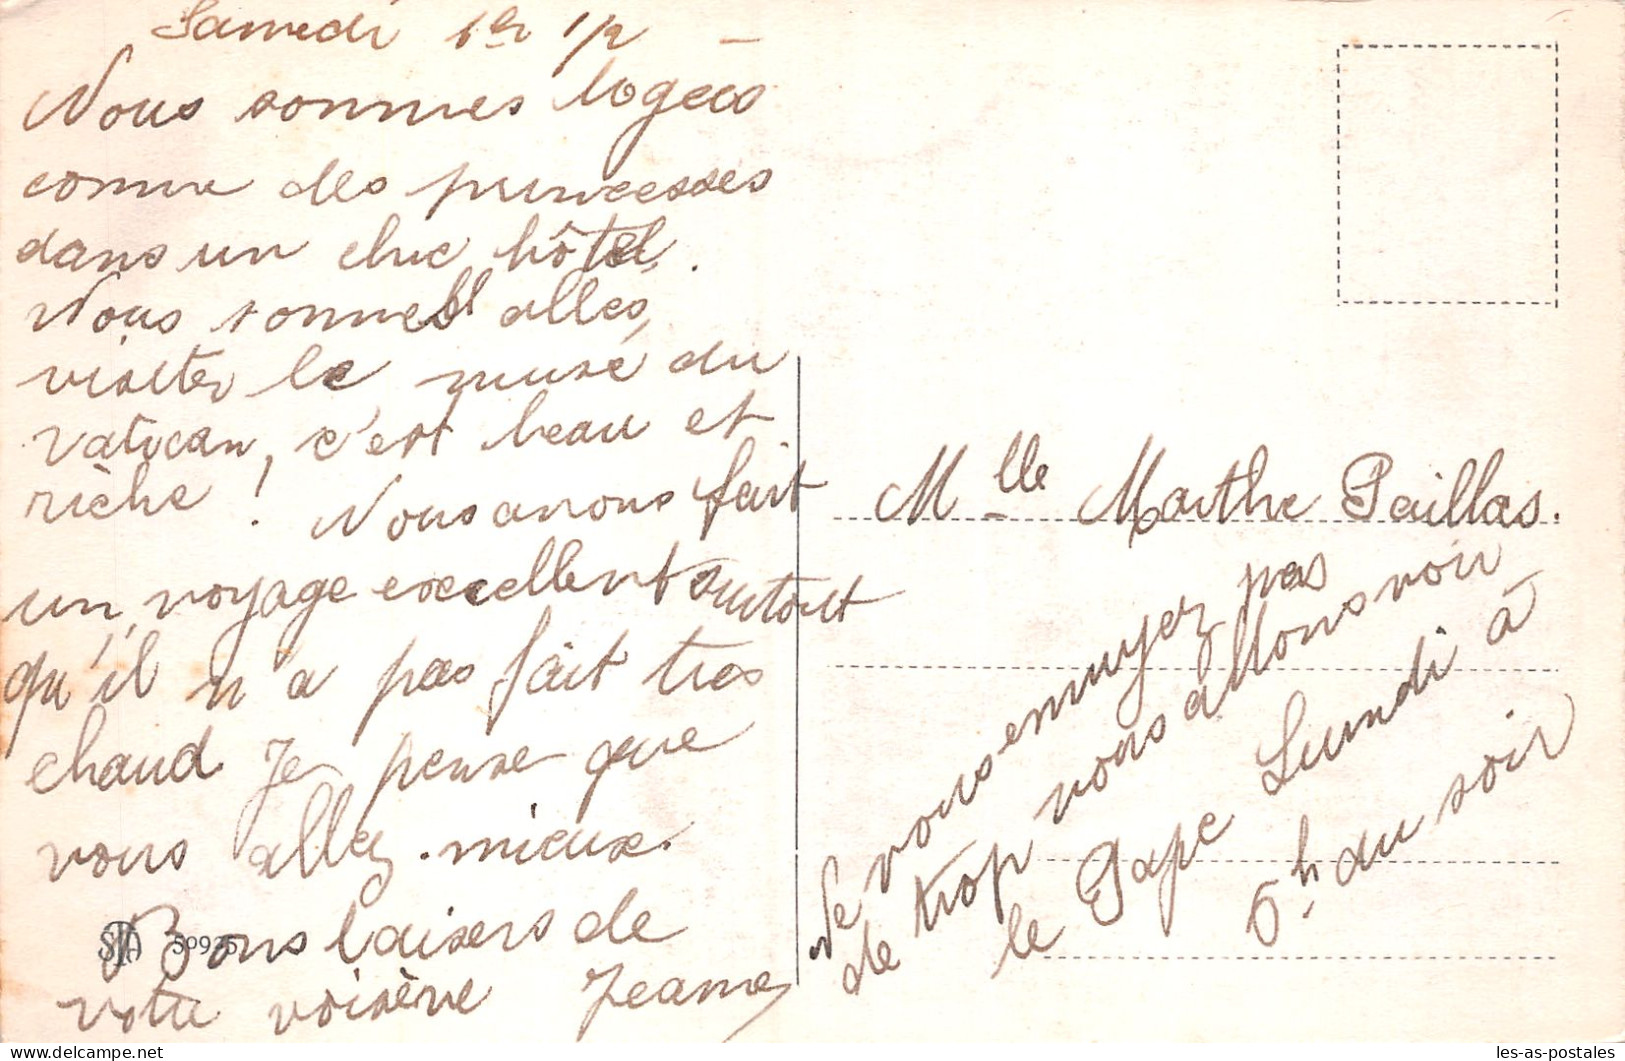 Samedi 6h 1/2 -
Nous sommes logées
comme des princesses
dans un chic hôtel.
Nous sommes allés,
visiter le musé du
vatican, c'est beau et
riche ! Nous avons fait
un voyage excellent surtout
qu'il n'a pas fait tres
chaud. Je pense que
vous allez mieux.
Bons baisers de
votre voisène Jeanne
STA 50935
Mlle Marthe Paillas.
Ne vous ennuyez pas
de trop nous allons voir
le Pape Lundi à
6h du soir
les-as-postales
www.delcampe.net